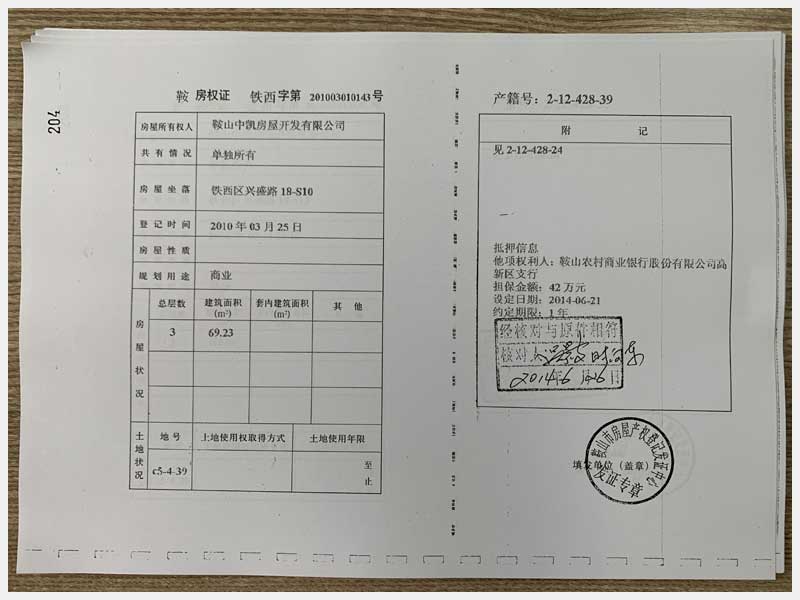 204
鞍 房权证 铁西 字第 201003010143 号
房屋所有权人 鞍山中凯房屋开发有限公司
共有情况 单独所有
房屋坐落 铁西区兴盛路 18-S10
登记时间 2010 年 03 月 25 日
房屋性质
规划用途 商业
房屋状况
总层数 建筑面积 (m²) 套内建筑面积 (m²) 其他
3 69.23
土地状况
地号 土地使用权取得方式 土地使用年限
c5-4-39 至
止
产籍号: 2-12-428-39
附 记
见 2-12-428-24
抵押信息
他项权利人: 鞍山农村商业银行股份有限公司高
新区支行
担保金额: 42 万元
设定日期: 2014-06-21
约定期限: 1 年
经核对与原件相符
核对人
2014年6月26日
填发单位 (盖章)
鞍山市房屋产权登记发证中心
发证专章